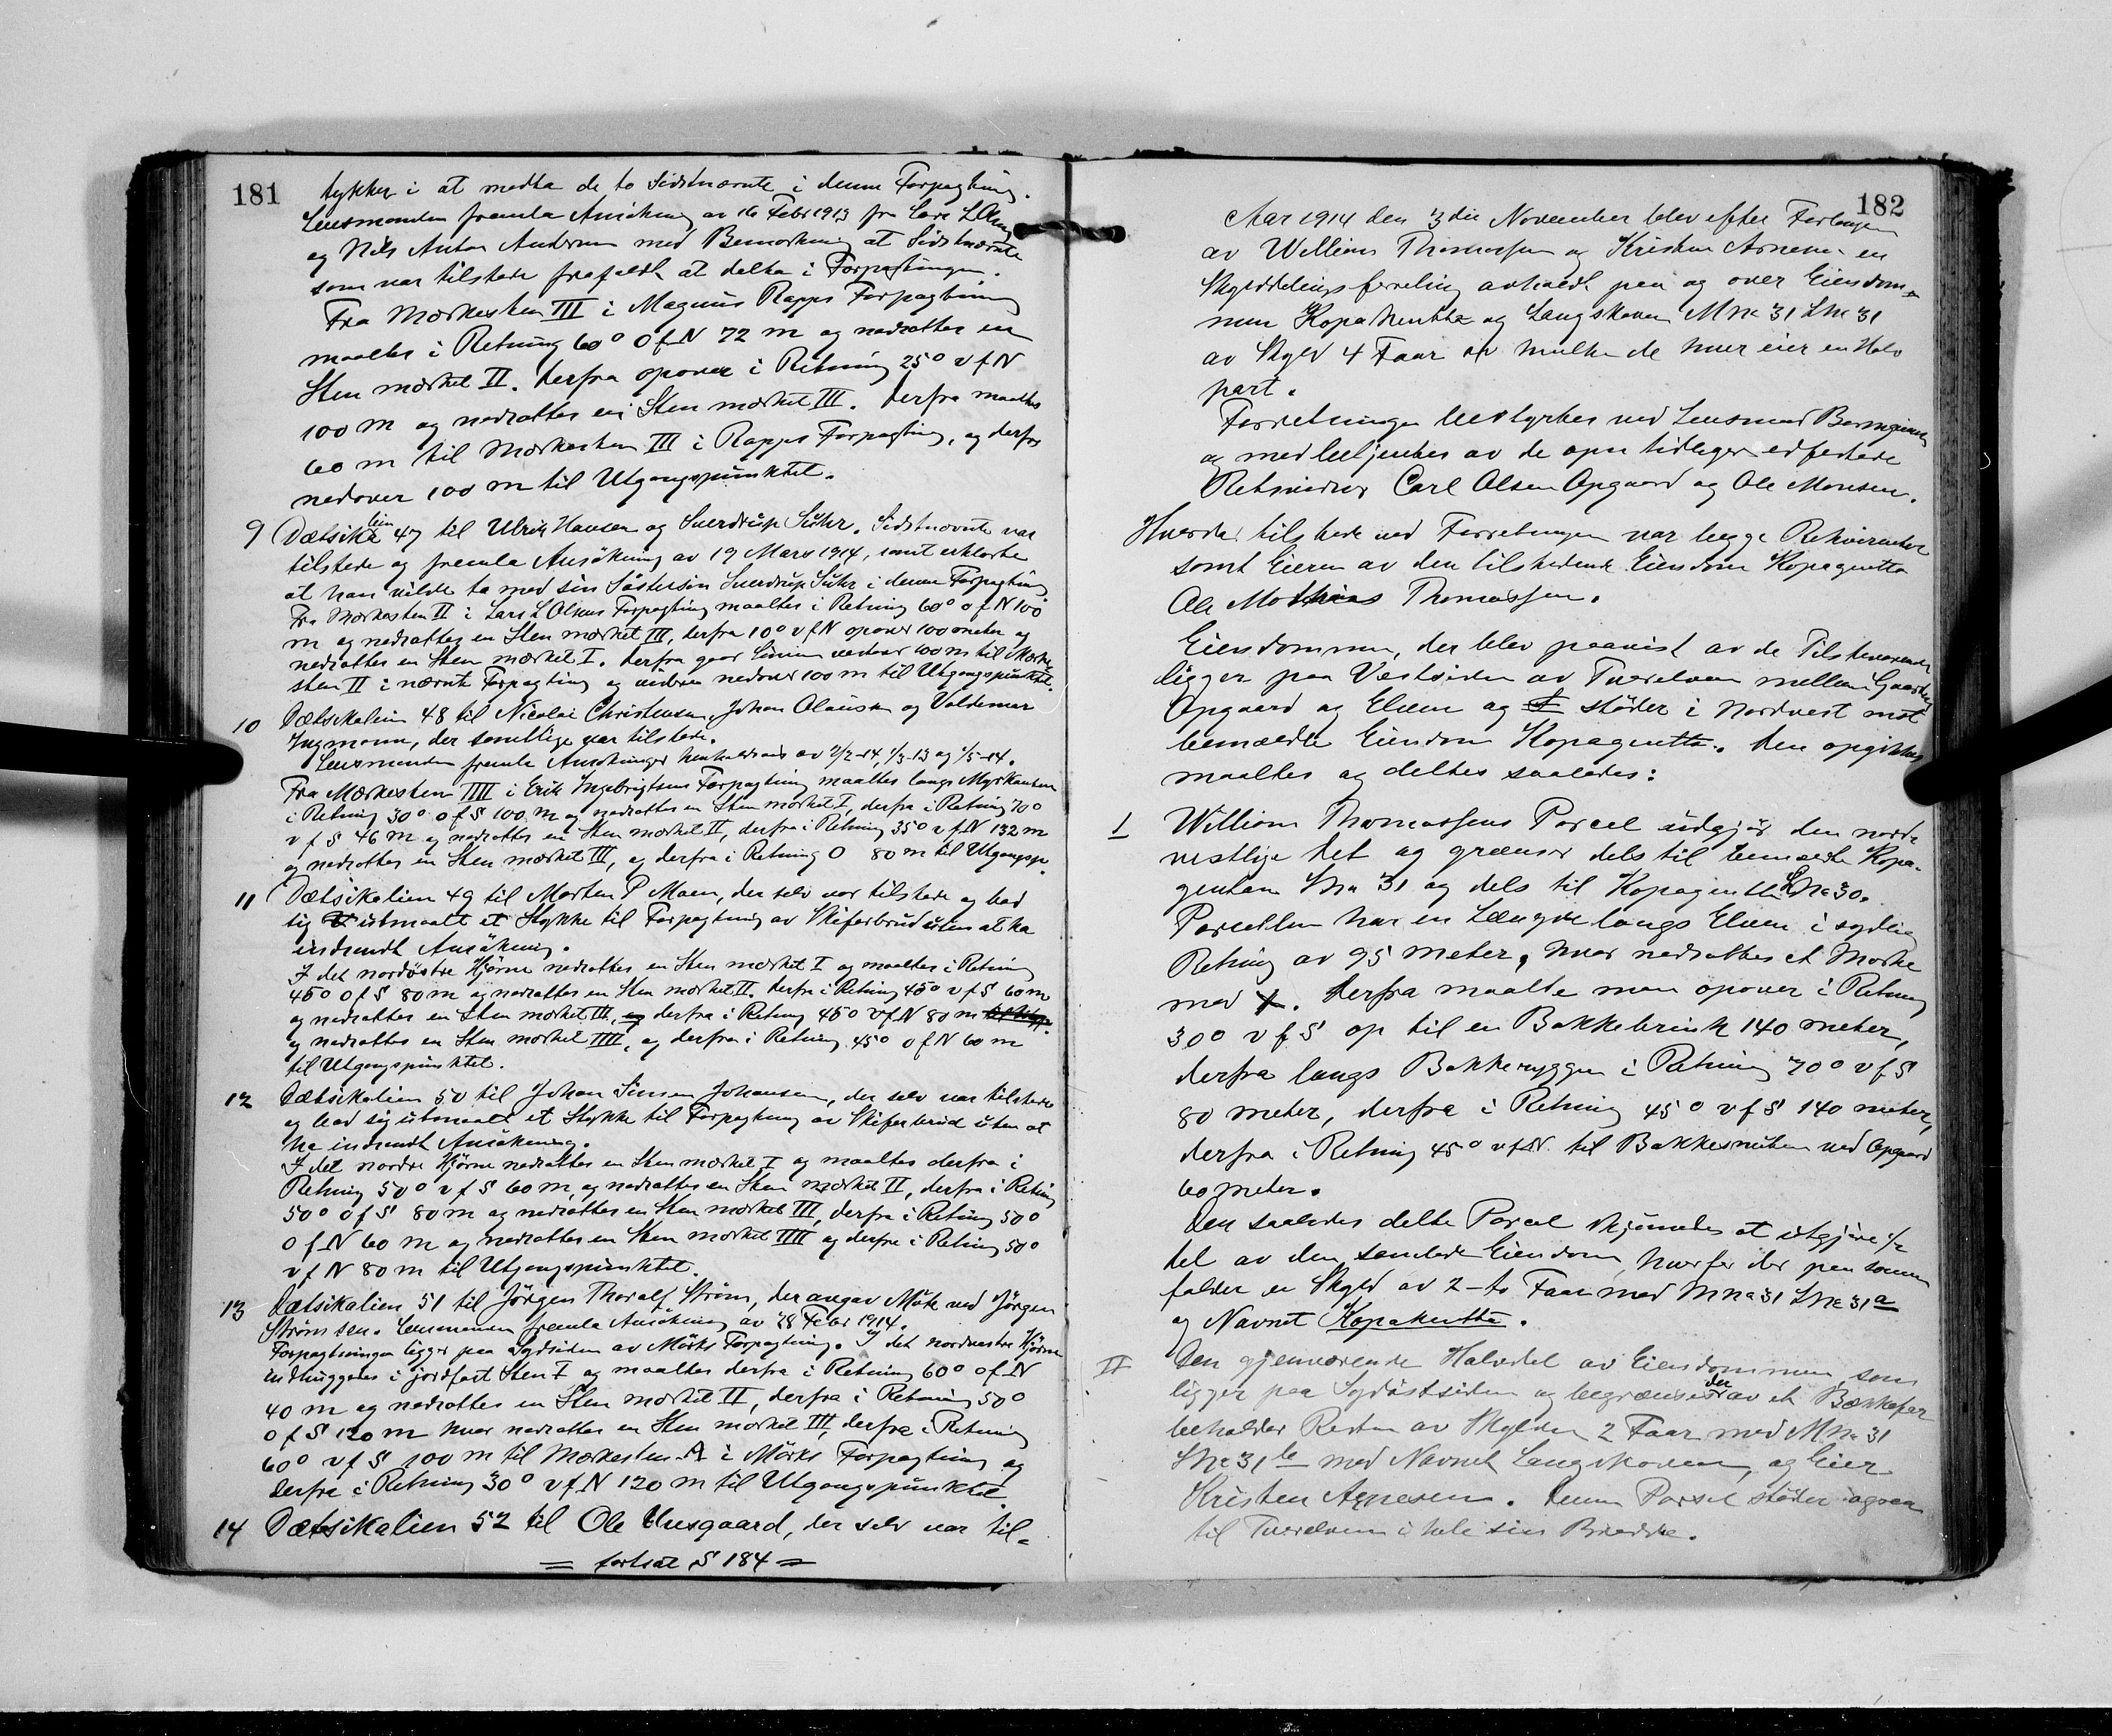 181
tykker i at medta de to Sidstnævnte i denne Forpagtning.
Lensmanden fremla Ansökning av 16 Febr 1913 fra Lars L Olsen
og Nils Anton Andersen med Bemærkning at Sidstnævnte
som var tilstede frafaldt at delta i Forpagtningen.
Fra Mærkesten III i Magnus Rapps Forpagtning
maaltes i Retning 60° O f N 72 m og nedsattes en
Sten mærket II. Derfra opover i Retning 25° v f N
100 m og nedsattes en Sten mærket III. Derfra maaltes
60 m til Mærkesten III i Rapps Forpagtning, og derfra
nedover 100 m til Utgangspunktet.
9 Dætsikalien 47 til Ulrik Hansen og Sverdrup Suhr. Sidstnævnte var
tilstede og fremla Ansökning av 19 Mars 1914, samt erklærte
at han vilde ta med sin Søstersøn Sverdrup Suhr i denne Forpagtning.
Fra Mærkesten II i Lars L Olsens Forpagtning maaltes i Retning 60° o f N 100
m og nedsattes en Sten mærket III, derfra 10° v f N opover 100 meter og
nedsattes en Sten mærket I. Derfra gaar Linien vestover 100 m til Mærke-
sten II i nævnte Forpagtning og videre nedover 100 m til Utgangspunktet.
10 Dætsikalien 48 til Nicolai Christensen, Johan Olausen og Valdemar
Ingmann, der samtlige var tilstede.
Lensmanden fremla Ansökninger henholdsvis av 2/2-14, 1/3-13 og 1/5-14.
Fra Mærkesten IIII i Erik Ingebrigtsens Forpagtning maaltes langs Myrkanten
i Retning 30° o f S 100 m og nedsattes en Sten mærket I, derfra i Retning 70°
v f S 46 m og nedsattes en Sten mærket II, derfra i Retning 35° v f N 132 m
og nedsattes en Sten mærket III, og derfra i Retning O 80 m til Utgangsp.
11 Dætsikalien 49 til Morten P Moen, der selv var tilstede og bad
sig utmaalt et Stykke til Forpagtning av Skiferbrud uten at ha
indsendt Ansökning.
I det nordöstre Hjörne nedsattes en Sten mærket I og maaltes i Retning
45° O f S 80 m og nedsattes en Sten mærket II. Derfra i Retning 45° v f S 60 m
og nedsattes en Sten mærket III, og derfra i Retning 45° v f N 80 m til Utgsp.
og nedsattes en Sten mærket IIII, og derfra i Retning 45° o f N 60 m
til Utgangspunktet.
12 Dætsikalien 50 til Johan Simon Johansen, der selv var tilstede
og bad sig utmaalt et Stykke til Forpagtning av Skiferbrud uten at
ha indsendt Ansökning.
I det nordre Hjörne nedsattes en Sten mærket I og maaltes derfra i
Retning 50° v f S 60 m og nedsattes en Sten mærket II, derfra i Retning
50° o f S 80 m og nedsattes en Sten mærket III, derfra i Retning 50°
O f N 60 m og nedsattes en Sten mærket IIII og derfra i Retning 50°
v f N 80 m til Utgangspunktet.
13 Dætsikalien 51 til Jörgen Thoralf Ström, der angav Möte ved Jörgen
Strömsen. Lensmanden fremla Ansökning av 28 Febr 1914.
Forpagtningen ligger paa Sydsiden av Mörks Forpagtning. I det nordvestre Hjörne
indhuggedes i jordfast Sten I og maaltes derfra i Retning 60° o f N
40 m og nedsattes en Sten mærket II, derfra i Retning 50°
o f S 120 m hvor nedsattes en Sten mærket III, derfra i Retning
60° v f S 100 m til Mærkesten A i Mörks Forpagtning og
derfra i Retning 30° v f N 120 m til Utgangspunktet
14 Dætsikalien 52 til Ole Uresgaard, der selv var til-
= fortsat S 184 =
182
Aar 1914 den 3die November blev efter Forlangen
av William Thomassen og Kristen Arnesen en
Skylddelingsforretning avholdt paa og over Eiendom-
men Kopakentta og Langskoven M No 31 L No 31
av Skyld 4 Faar av hvilken de hver eier en Halv
part.
Forretningen bestyrkes ved Lensmand
og medbetjentes av de opn tidligere edfæstede
Retsvidner Carl Olsen Opgaard og Ole Monsen.
Hverder tilstede ved Forretningen var begge Rekvirenter
samt Eieren av den tilstödende Eiendom Kopagentta
Ole Mathias Thomassen.
Eiendommen, der blev paavist av de Tilstedeværende
ligger paa Vestsiden av Tverelven mellem Gaarden
Opgaard og Elven og støder i Nordvest mot
bemældte Eiendom Kopagentta. Den opgikkes
maaltes og deltes saaledes:
I William Thomassens Parcel udgjör den nord-
vestlige Del og grænser dels til bemældte Kopa-
gentta L No 31 og dels til Kopagentta L No 30.
Parcellen har en Længde langs Elven i sydlig
Retning av 95 meter, hvor nedsattes et Mærke
med X. Derfra maalte man opover i Retning
30° v f S op til en Bakkebrink 140 meter,
derfra langs Bakkeryggen i Retning 70° v f S
80 meter, derfra i Retning 45° v f S 140 meter,
derfra i Retning 45° v f N til Bakkesnuten ved Opgaard
60 meter.
Den saaledes delte Parcel skjönnedes at utgjöre 1/2
del av den samlede Eiendom, hvorfor der paa samme
falder en Skyld av 2-to Faar med M No 31 L No 31 a
og Navnet Kopakentta.
II Den gjenværende Halvdel av Eiendommen, som
ligger paa Sydöstsiden og begrænses der av et Bækkefar
beholder Resten av Skylden 2 Faar med M No 31
L No 31 b med Navnet Langskoven, og Eier
Kristen Arnesen. Denne Parsel støder ogsaa
til Tverelven i hele sin Bredde.